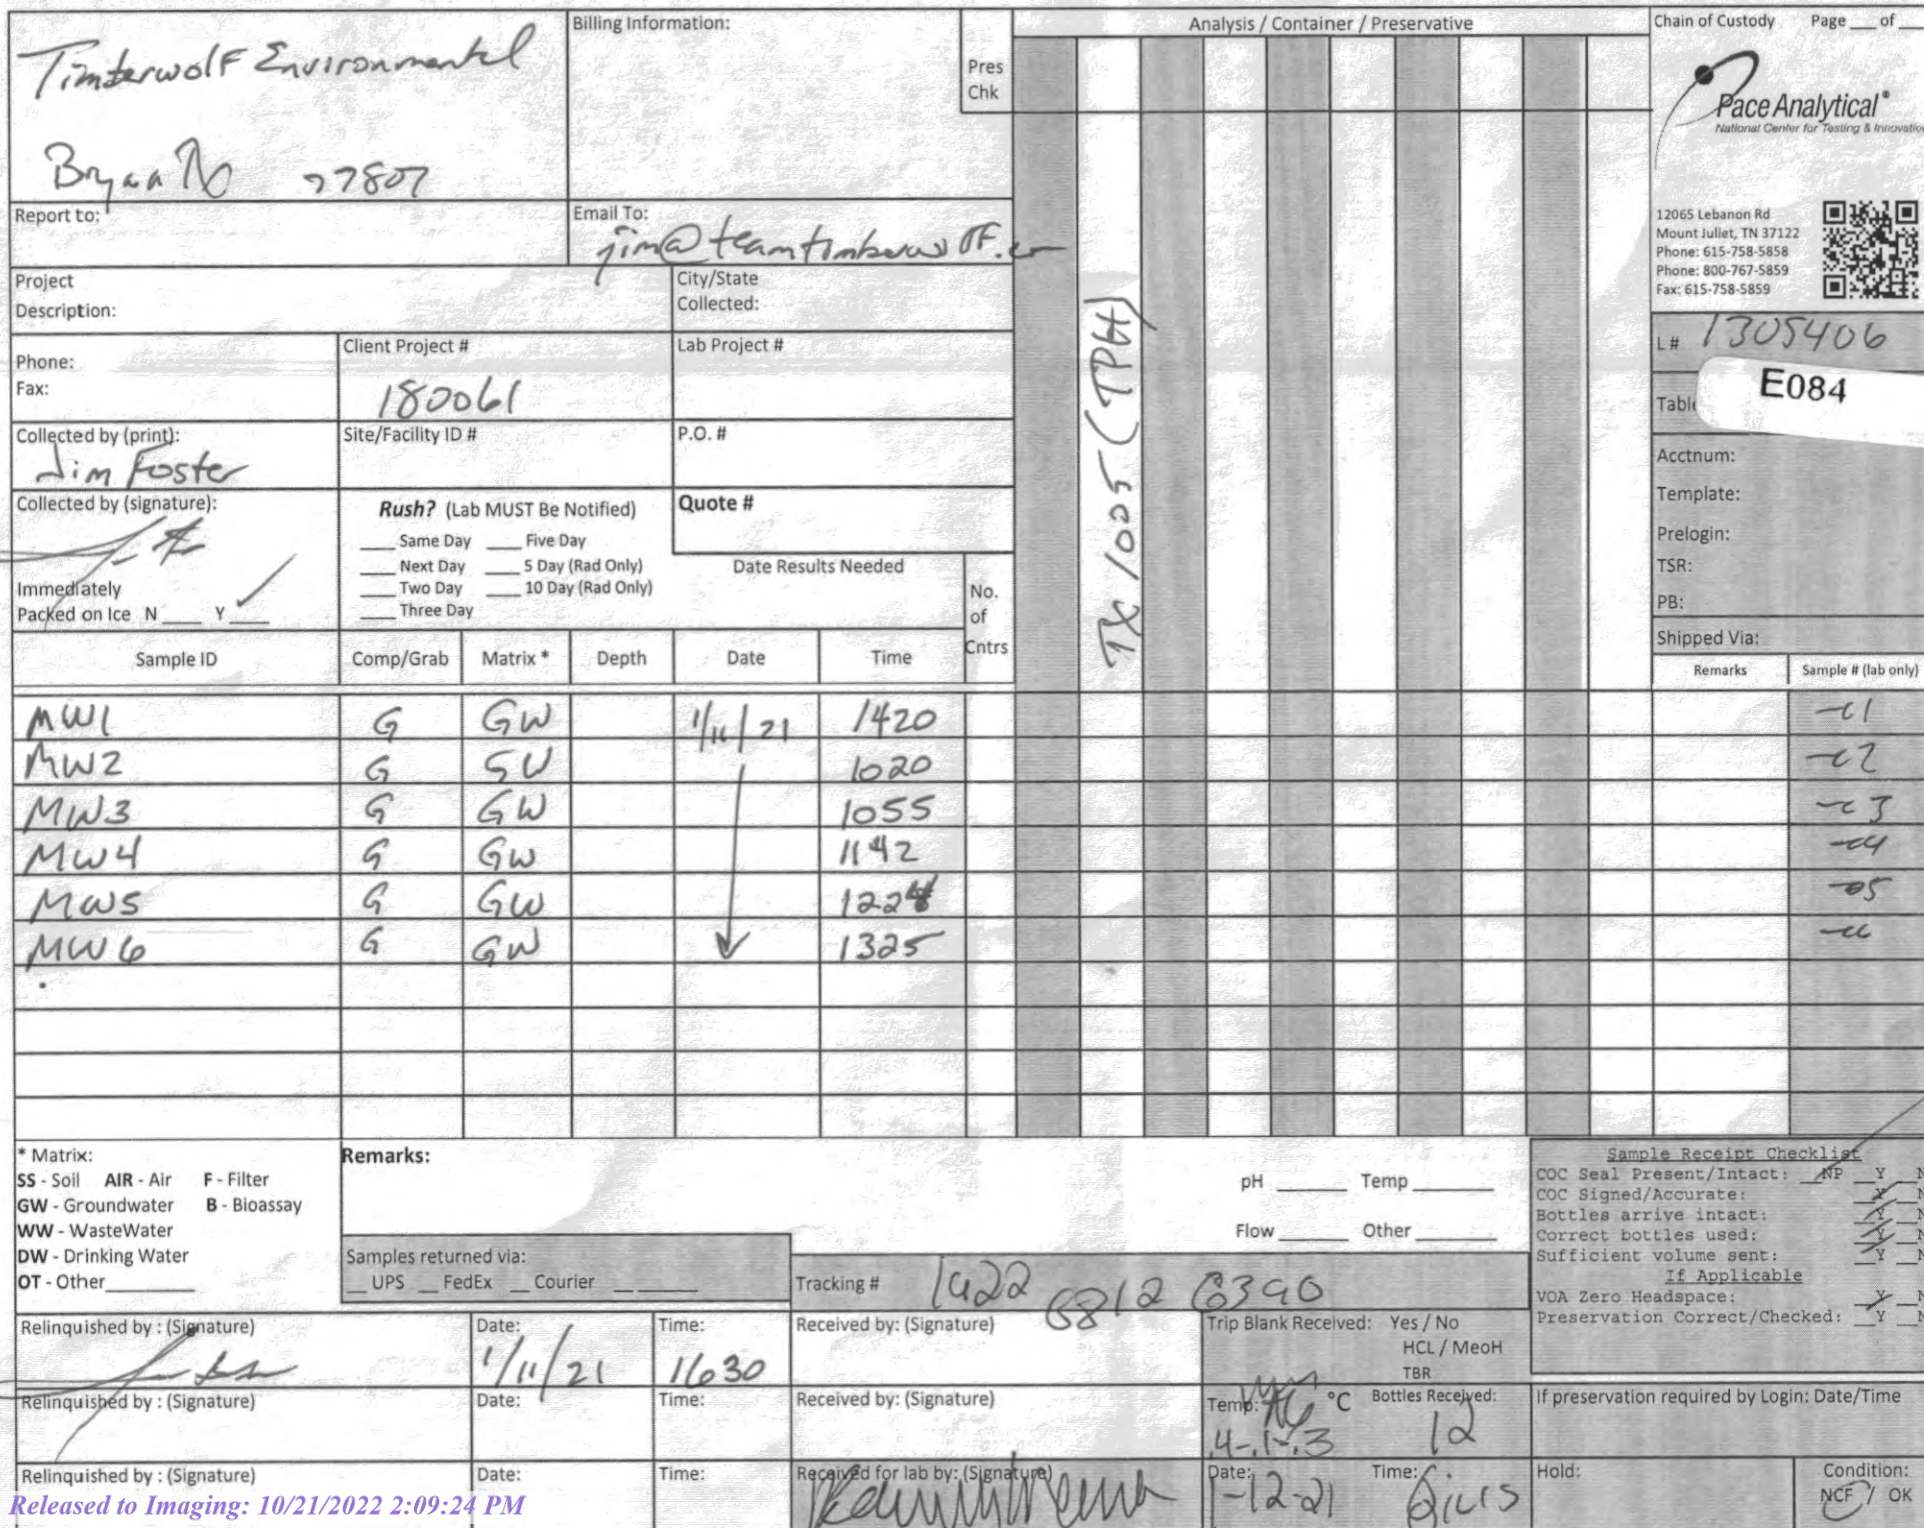 Timberwolf Environmental
Bryan TX 77807
Billing Information:
Pres
Chk
Analysis / Container / Preservative
Chain of Custody Page ___ of ___
Pace Analytical®
National Center for Testing & Innovation
12065 Lebanon Rd
Mount Juliet, TN 37122
Phone: 615-758-5858
Phone: 800-767-5859
Fax: 615-758-5859
Report to:
Email To:
jim@teamtimberwolf.co
Project
Description:
City/State
Collected:
TX 1005 (TPH)
L# 1305406
E084
Phone:
Fax:
Client Project #
180061
Lab Project #
Collected by (print):
Jim Foster
Site/Facility ID #
P.O. #
Acctnum:
Template:
Prelogin:
TSR:
PB:
Shipped Via:
Collected by (signature):
Rush? (Lab MUST Be Notified)
___ Same Day ___ Five Day
___ Next Day ___ 5 Day (Rad Only)
___ Two Day ___ 10 Day (Rad Only)
___ Three Day
Quote #
Date Results Needed
No.
of
Cntrs
Immediately
Packed on Ice N ___ Y ✓
Sample ID Comp/Grab Matrix * Depth Date Time Remarks Sample # (lab only)
MW1 G GW 1/11/21 1420 -01
MW2 G GW 1020 -02
MW3 G GW 1055 -03
MW4 G GW 1142 -04
MW5 G GW -05
MW6 G GW 1325 -06
* Matrix:
SS - Soil AIR - Air F - Filter
GW - Groundwater B - Bioassay
WW - WasteWater
DW - Drinking Water
OT - Other
Remarks:
pH ___ Temp ___
Flow ___ Other ___
Samples returned via:
__ UPS __ FedEx __ Courier ___
Tracking # 1422 6812 6390
Sample Receipt Checklist
COC Seal Present/Intact: NP Y N
COC Signed/Accurate: Y N
Bottles arrive intact: Y N
Correct bottles used: Y N
Sufficient volume sent: Y N
If Applicable
VOA Zero Headspace: Y N
Preservation Correct/Checked: Y N
Relinquished by : (Signature)
Date: 1/11/21
Time: 1630
Received by: (Signature)
Trip Blank Received: Yes / No
HCL / MeoH
TBR
Relinquished by : (Signature)
Date:
Time:
Received by: (Signature)
Temp: °C
.4-.1=.3
Bottles Received:
12
If preservation required by Login: Date/Time
Relinquished by : (Signature)
Date:
Time:
Received for lab by: (Signature)
Date: 1-12-21
Time:
Hold:
Condition:
NCF / OK
Released to Imaging: 10/21/2022 2:09:24 PM